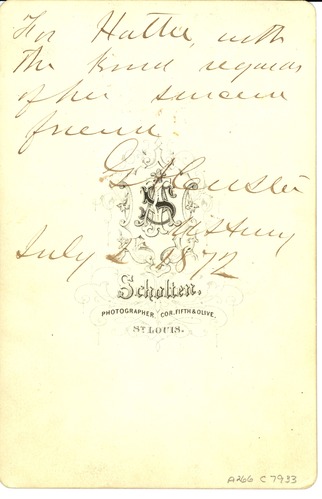 For Hattie, with
the kind regards
of her sincere
friend
G A Custer
US Army
July 2 1872
S
Scholten.
PHOTOGRAPHER, COR. FIFTH & OLIVE.
ST LOUIS.
A266 C7933